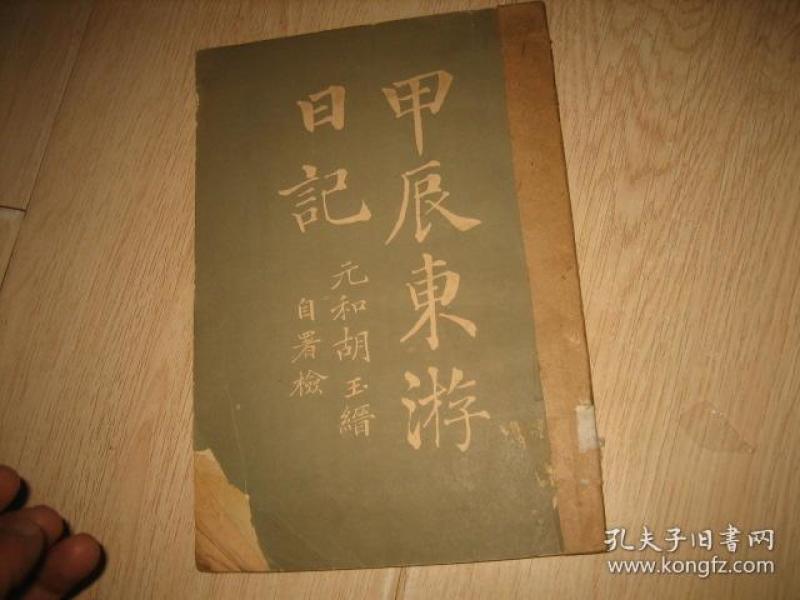 甲辰東游
日記
元和胡玉縉
自署檢
孔夫子旧書网
www.kongfz.com